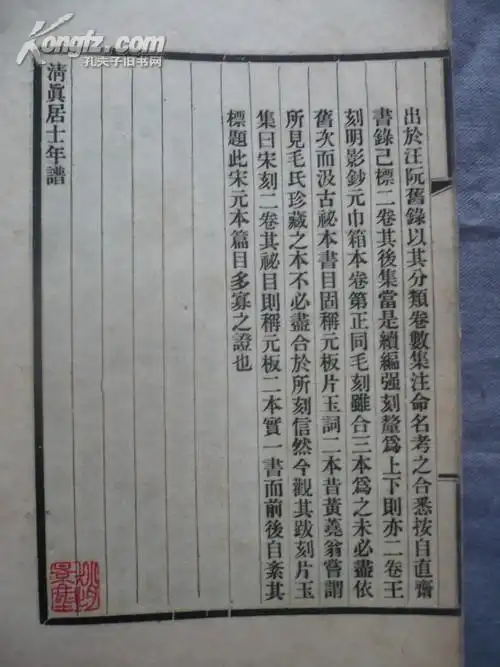 出於汪阮舊錄以其分類卷數集注命名考之合悉按自直齋
書錄已標二卷其後集當是續編强刻釐爲上下則亦二卷王
刻明影鈔元巾箱本卷第正同毛刻雖合三本爲之未必盡依
舊次而汲古祕本書目固稱元板片玉詞二本昔黃蕘翁嘗謂
所見毛氏珍藏之本不必盡合於所刻信然今觀其跋刻片玉
集曰宋刻二卷其祕目則稱元板二本實一書而前後自紊其
標題此宋元本篇目多寡之證也
清眞居士年譜
Kongfz.com
孔夫子旧书网